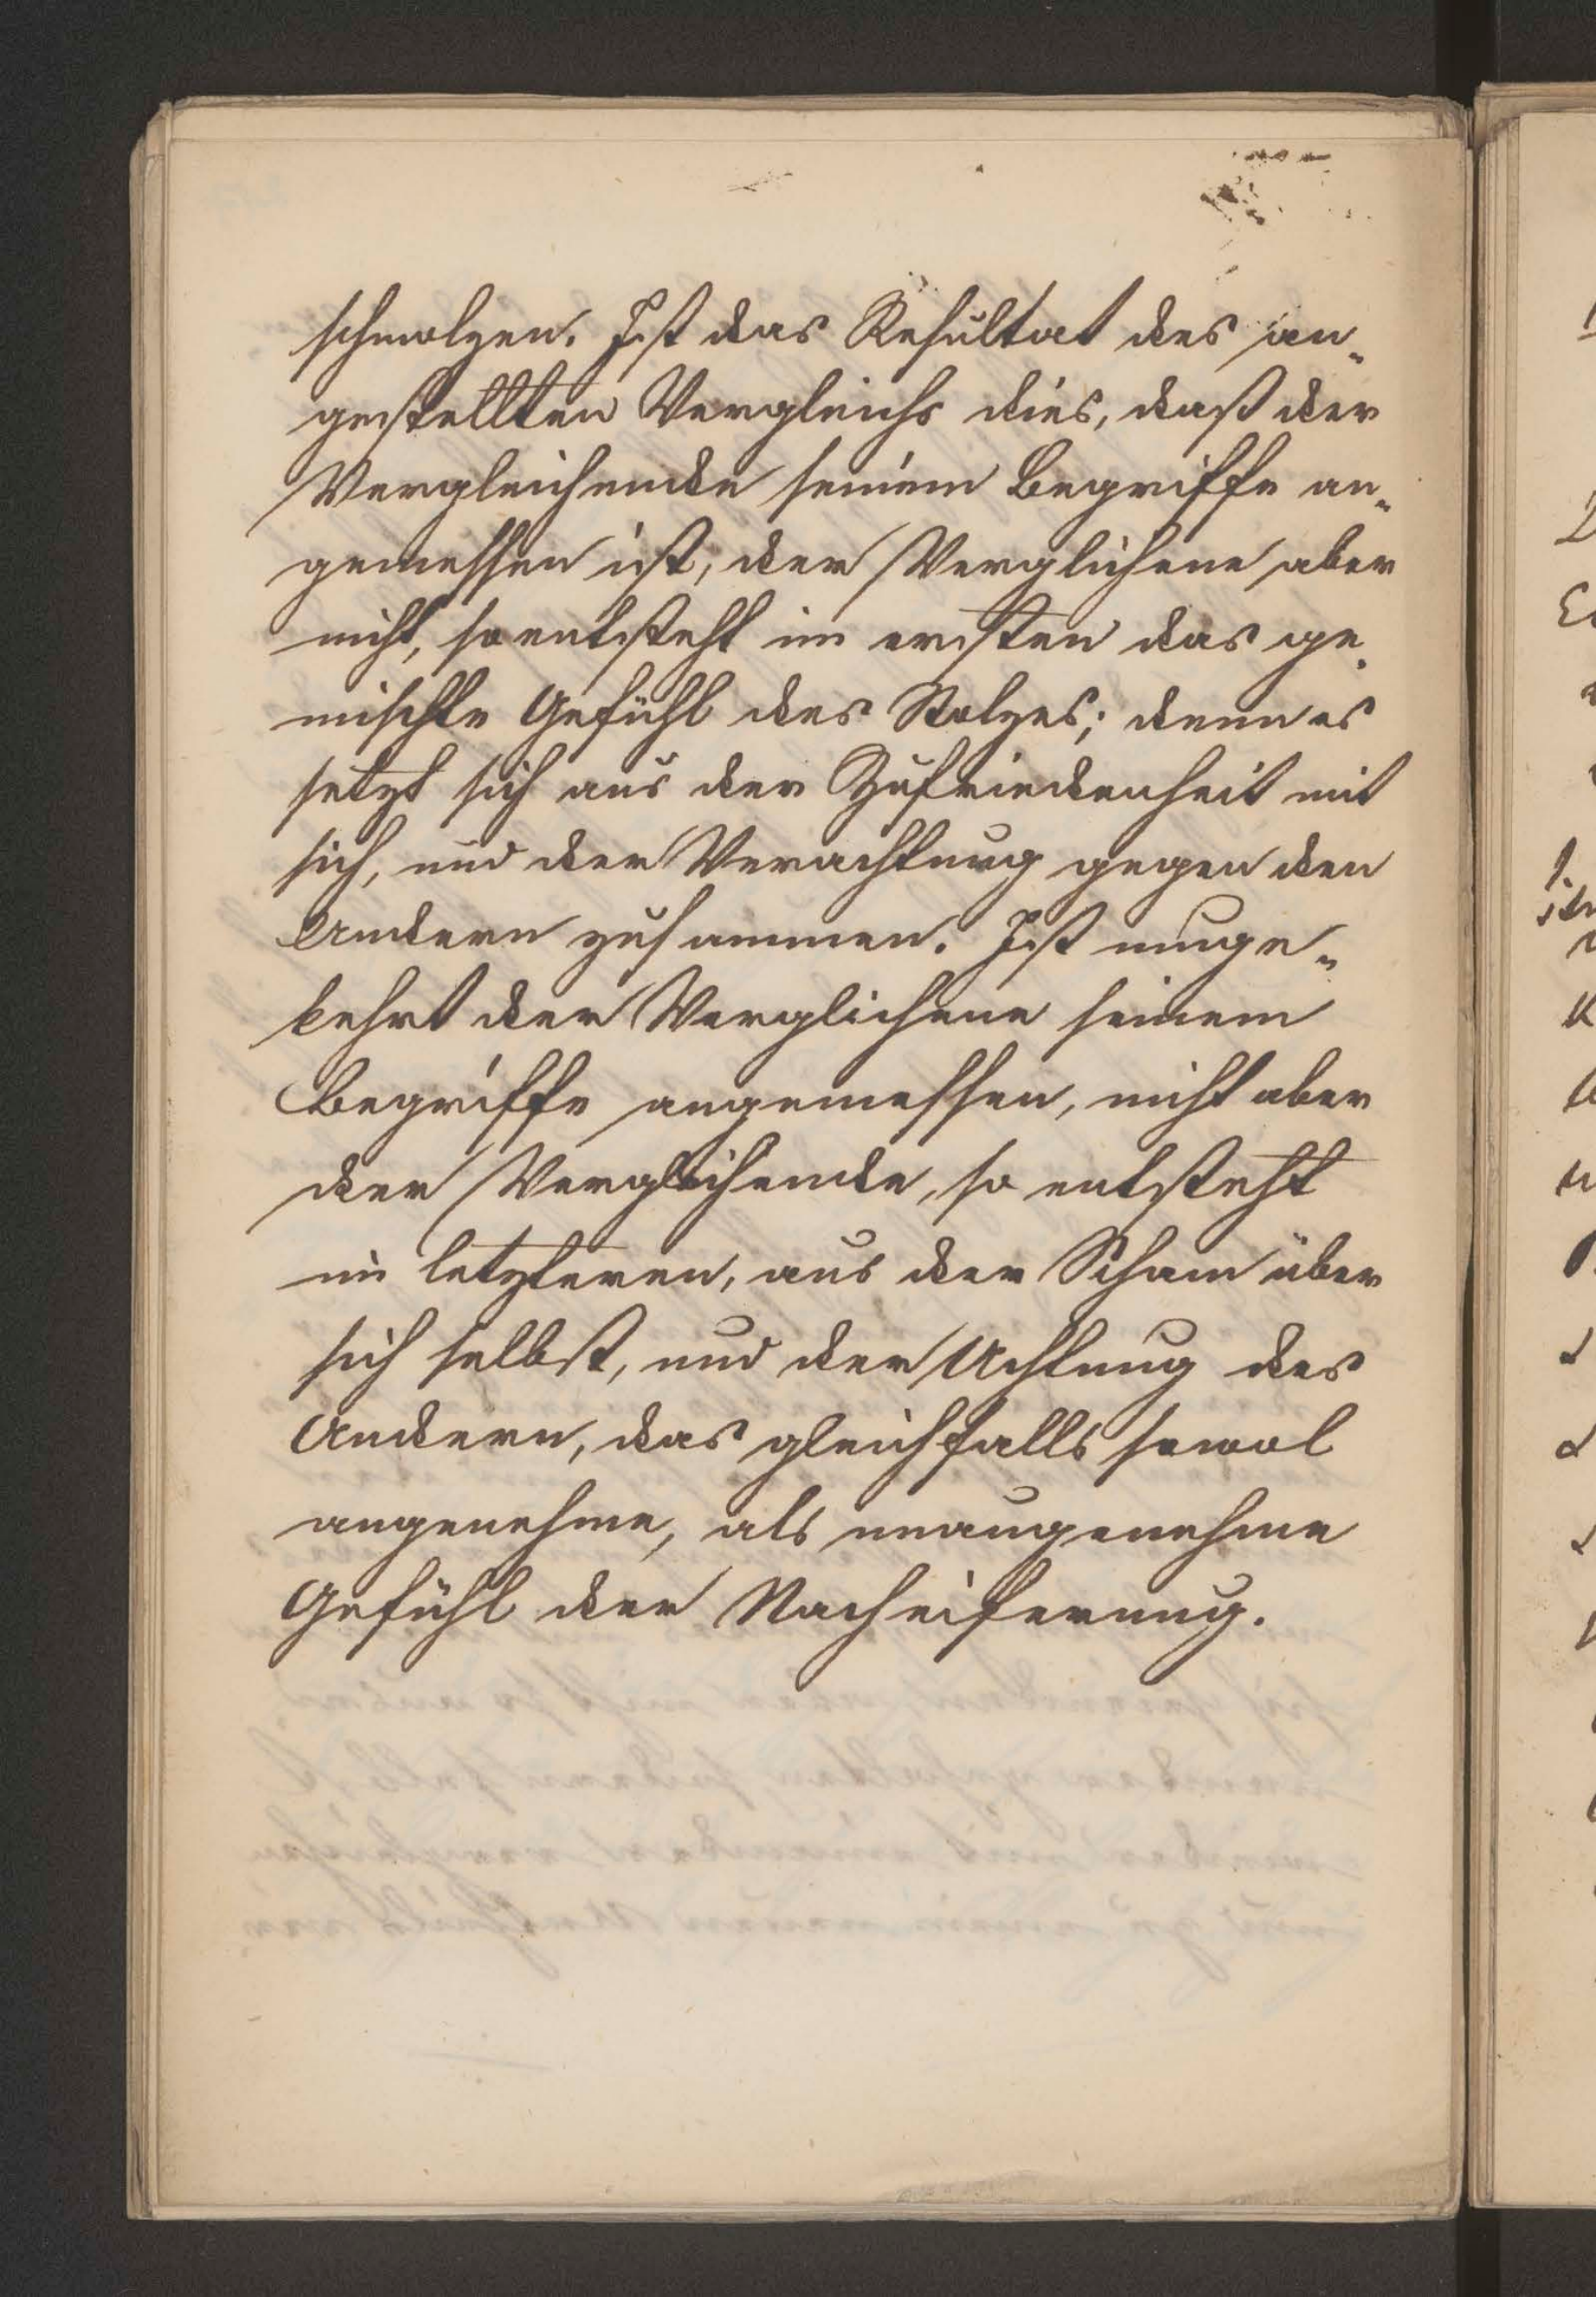 schmolzen. Ist das Resultat des an-
gestellten Vergleichs dies, daß der
Vergleichende seinem Begriffe an-
gemessen ist, der Verglichene aber
nicht, so entsteht im ersten das ge-
mischte Gefühl des Stolzes; denn es
setzt sich aus der Zufriedenheit mit
sich, und der Verachtung gegen den
Andern zusammen. Ist umge-
kehrt der Verglichene seinem
Begriffe angemessen, nicht aber
der Vergleichende, so entsteht
im letzteren, aus der Scham über
sich selbst, und der Achtung des
Andern, das gleichfalls sowol
angenehme, als unangenehme
Gefühl der Nacheiferung.